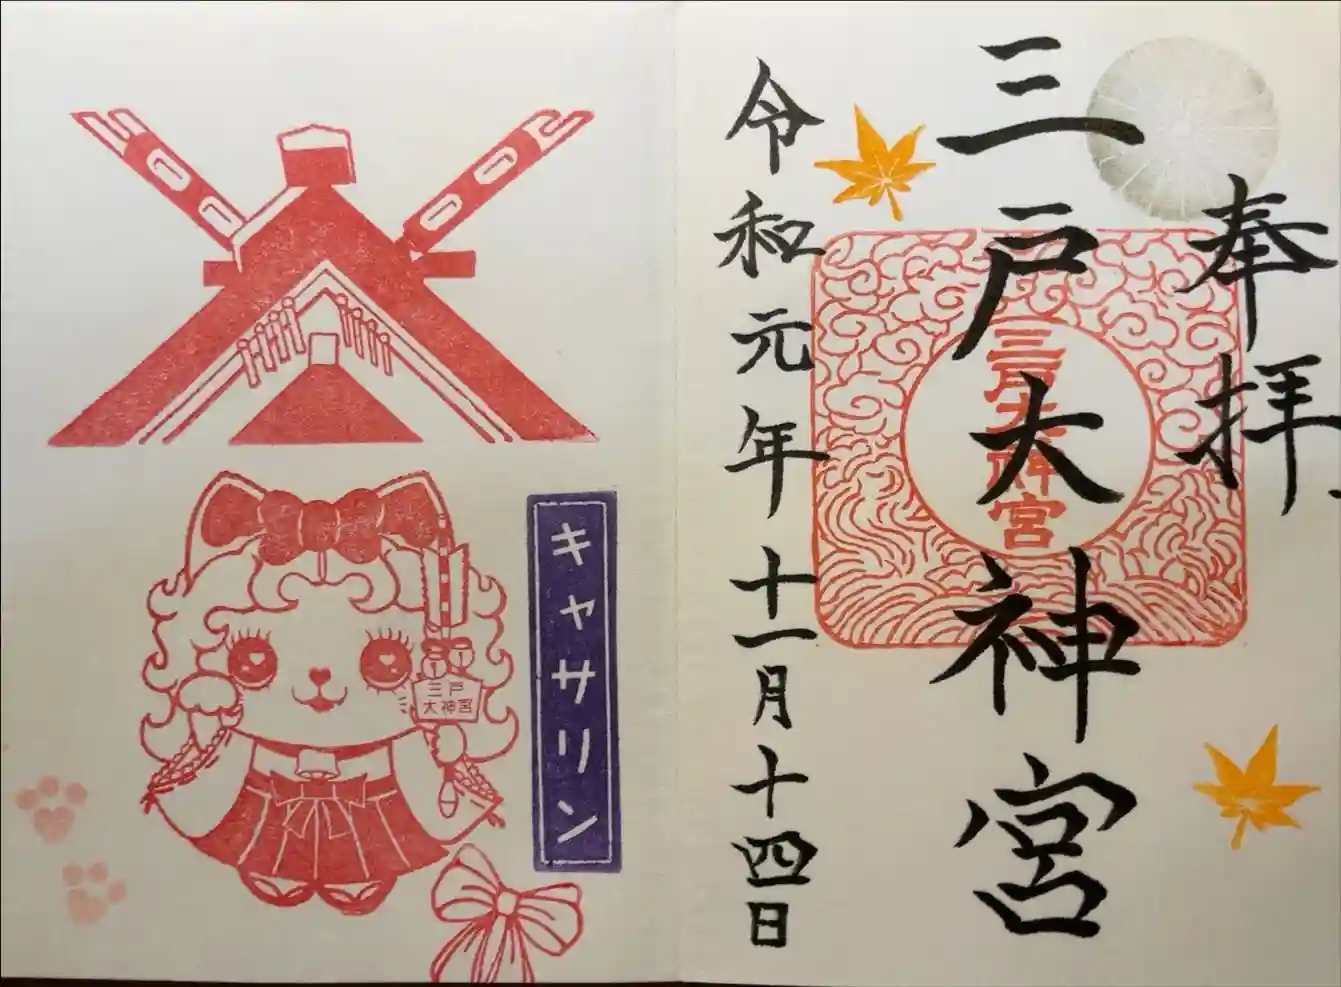 奉拝
三戸大神宮
三戸大神宮
令和元年十一月十四日
キャサリン
三戸
大神宮